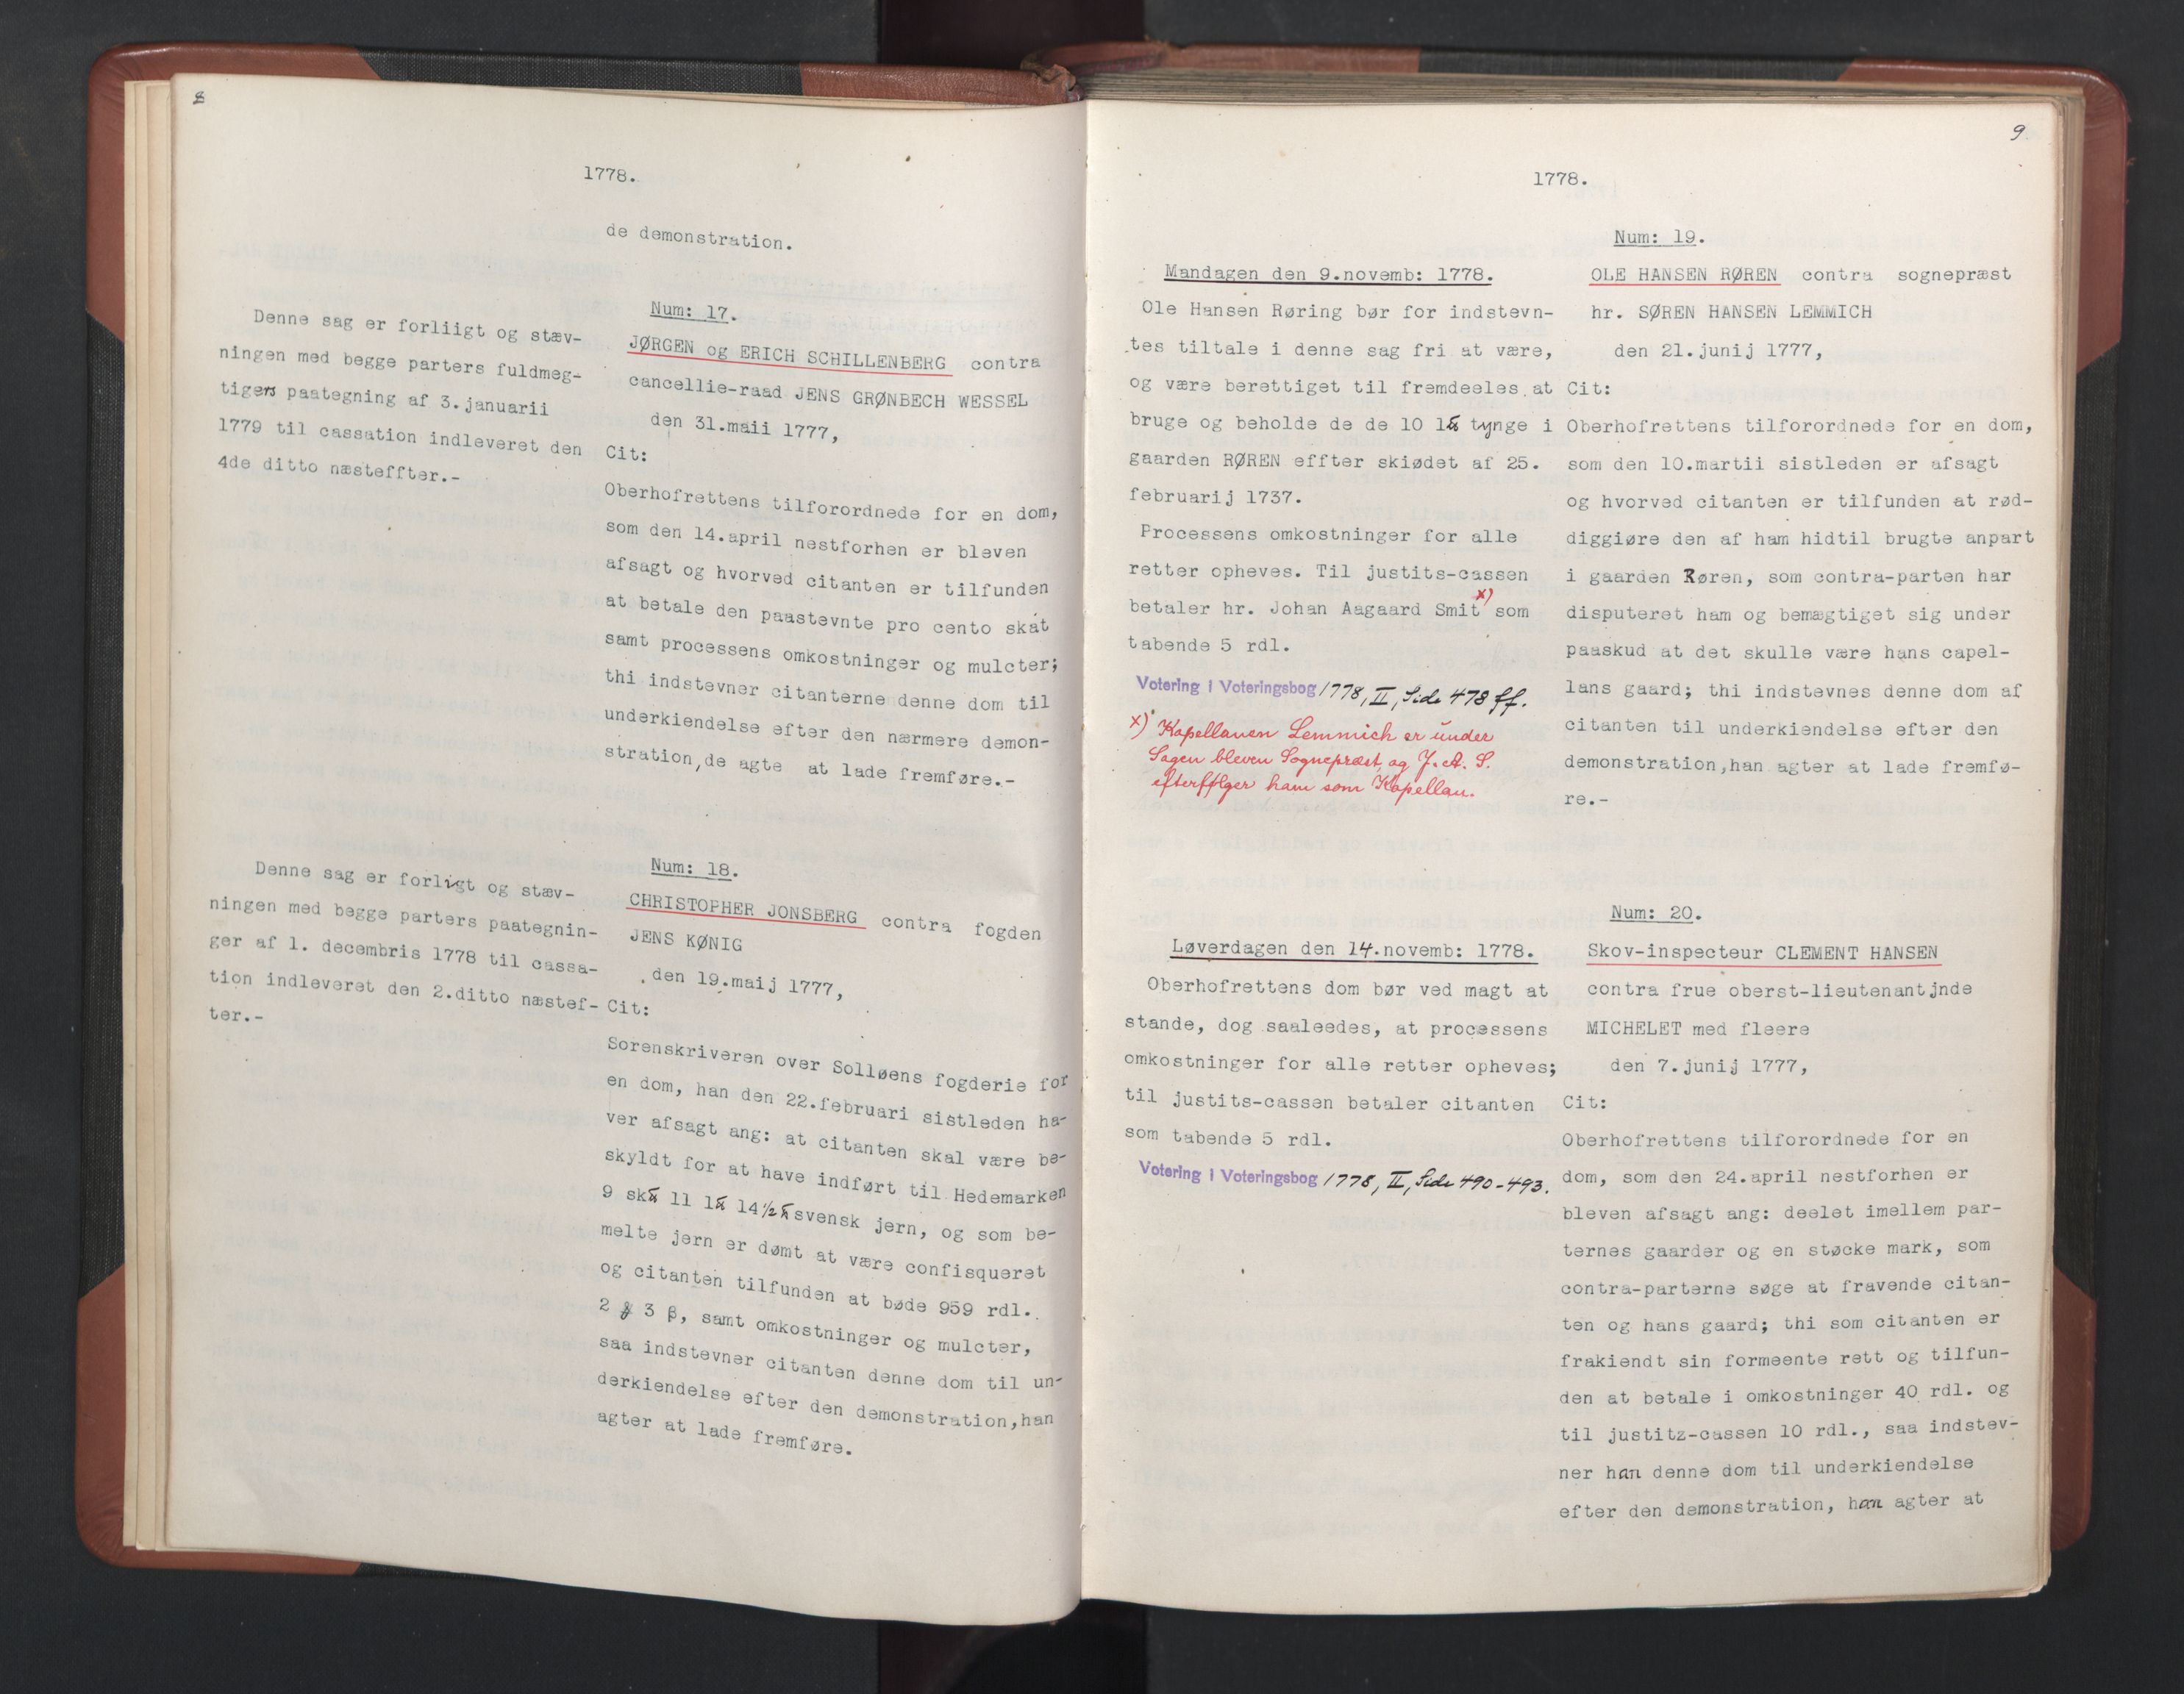 8
1778.
de demonstration.
Denne sag er forliigt og stæv-
ningen med begge parters fuldmeg-
tigers paategning af 3.januarii
1779 til cassation indleveret den
4de ditto næsteffter.-
Num: 17.
JØRGEN og ERICH SCHILLENBERG contra
cancellie-raad JENS GRØNBECH WESSEL
den 31.maii 1777,
Cit:
Oberhofrettens tilforordnede for en dom,
som den 14.april nestforhen er bleven
afsagt og hvorved citanten er tilfunden
at betale den paastevnte pro cento skat
samt processens omkostninger og mulcter;
thi indstevner citanterne denne dom til
underkiendelse efter den nærmere demon-
stration,de agte at lade fremføre.-
Denne sag er forligt og stæv-
ningen med begge parters paategnin-
ger af 1. decembris 1778 til cassa-
tion indleveret den 2.ditto næstef-
ter.-
Num: 18.
CHRISTOPHER JONSBERG contra fogden
JENS KØNIG
den 19.maij 1777,
Cit:
Sorenskriveren over Solløens fogderie for
en dom, han den 22.februari sistleden ha-
ver afsagt ang: at citanten skal være be-
skyldt for at have indført til Hedemarken
9 sk℔ 11 l℔ 14½ ℔ svensk jern, og som be-
melte jern er dømt at være confisqueret
og citanten tilfunden at bøde 959 rdl.
2 3 β, samt omkostninger og mulcter,
saa indstevner citanten denne dom til un-
derkiendelse efter den demonstration,han
agter at lade fremføre.
9
1778.
Mandagen den 9.novemb: 1778.
Ole Hansen Røring bør for indstevn-
tes tiltale i denne sag fri at være,
og være berettiget til fremdeeles at
bruge og beholde de de 10 l℔ tynge i
gaarden RØREN effter skiødet af 25.
februarij 1737.
Processens omkostninger for alle
retter opheves. Til justits-cassen
betaler hr. Johan Aagaard Smit x) som
tabende 5 rdl.
Votering i Voteringsbog 1778, II, Side 478 ff.
x) Kapellanen Lemmich er under
Sagen bleven Sognepræst og J. A. S.
efterfølger ham som Kapellan.
Num: 19.
OLE HANSEN RØREN contra sognepræst
hr. SØREN HANSEN LEMMICH
den 21.junij 1777,
Cit:
Oberhofrettens tilforordnede for en dom,
som den 10.martii sistleden er afsagt
og hvorved citanten er tilfunden at rød-
diggiøre den af ham hidtil brugte anpart
i gaarden Røren, som contra-parten har
disputeret ham og bemægtiget sig under
paaskud at det skulle være hans capel-
lans gaard; thi indstevnes denne dom af
citanten til underkiendelse efter den
demonstration,han agter at lade fremfø-
re.-
Løverdagen den 14.novemb: 1778.
Oberhofrettens dom bør ved magt at
stande, dog saaleedes, at processens
omkostninger for alle retter opheves;
til justits-cassen betaler citanten
som tabende 5 rdl.
Votering i Voteringsbog 1778, II, Side 490-493.
Num: 20.
Skov-inspecteur CLEMENT HANSEN
contra frue oberst-lieutenantjnde
MICHELET med fleere
den 7.junij 1777,
Cit:
Oberhofrettens tilforordnede for en
dom, som den 24.april nestforhen er
bleven afsagt ang: deelet imellem par-
ternes gaarder og en støcke mark, som
contra-parterne søge at fravende citan-
ten og hans gaard; thi som citanten er
frakiendt sin formeente rett og tilfun-
den at betale i omkostninger 40 rdl. og
til justitz-cassen 10 rdl., saa indstev-
ner han denne dom til underkiendelse
efter den demonstration, han agter at